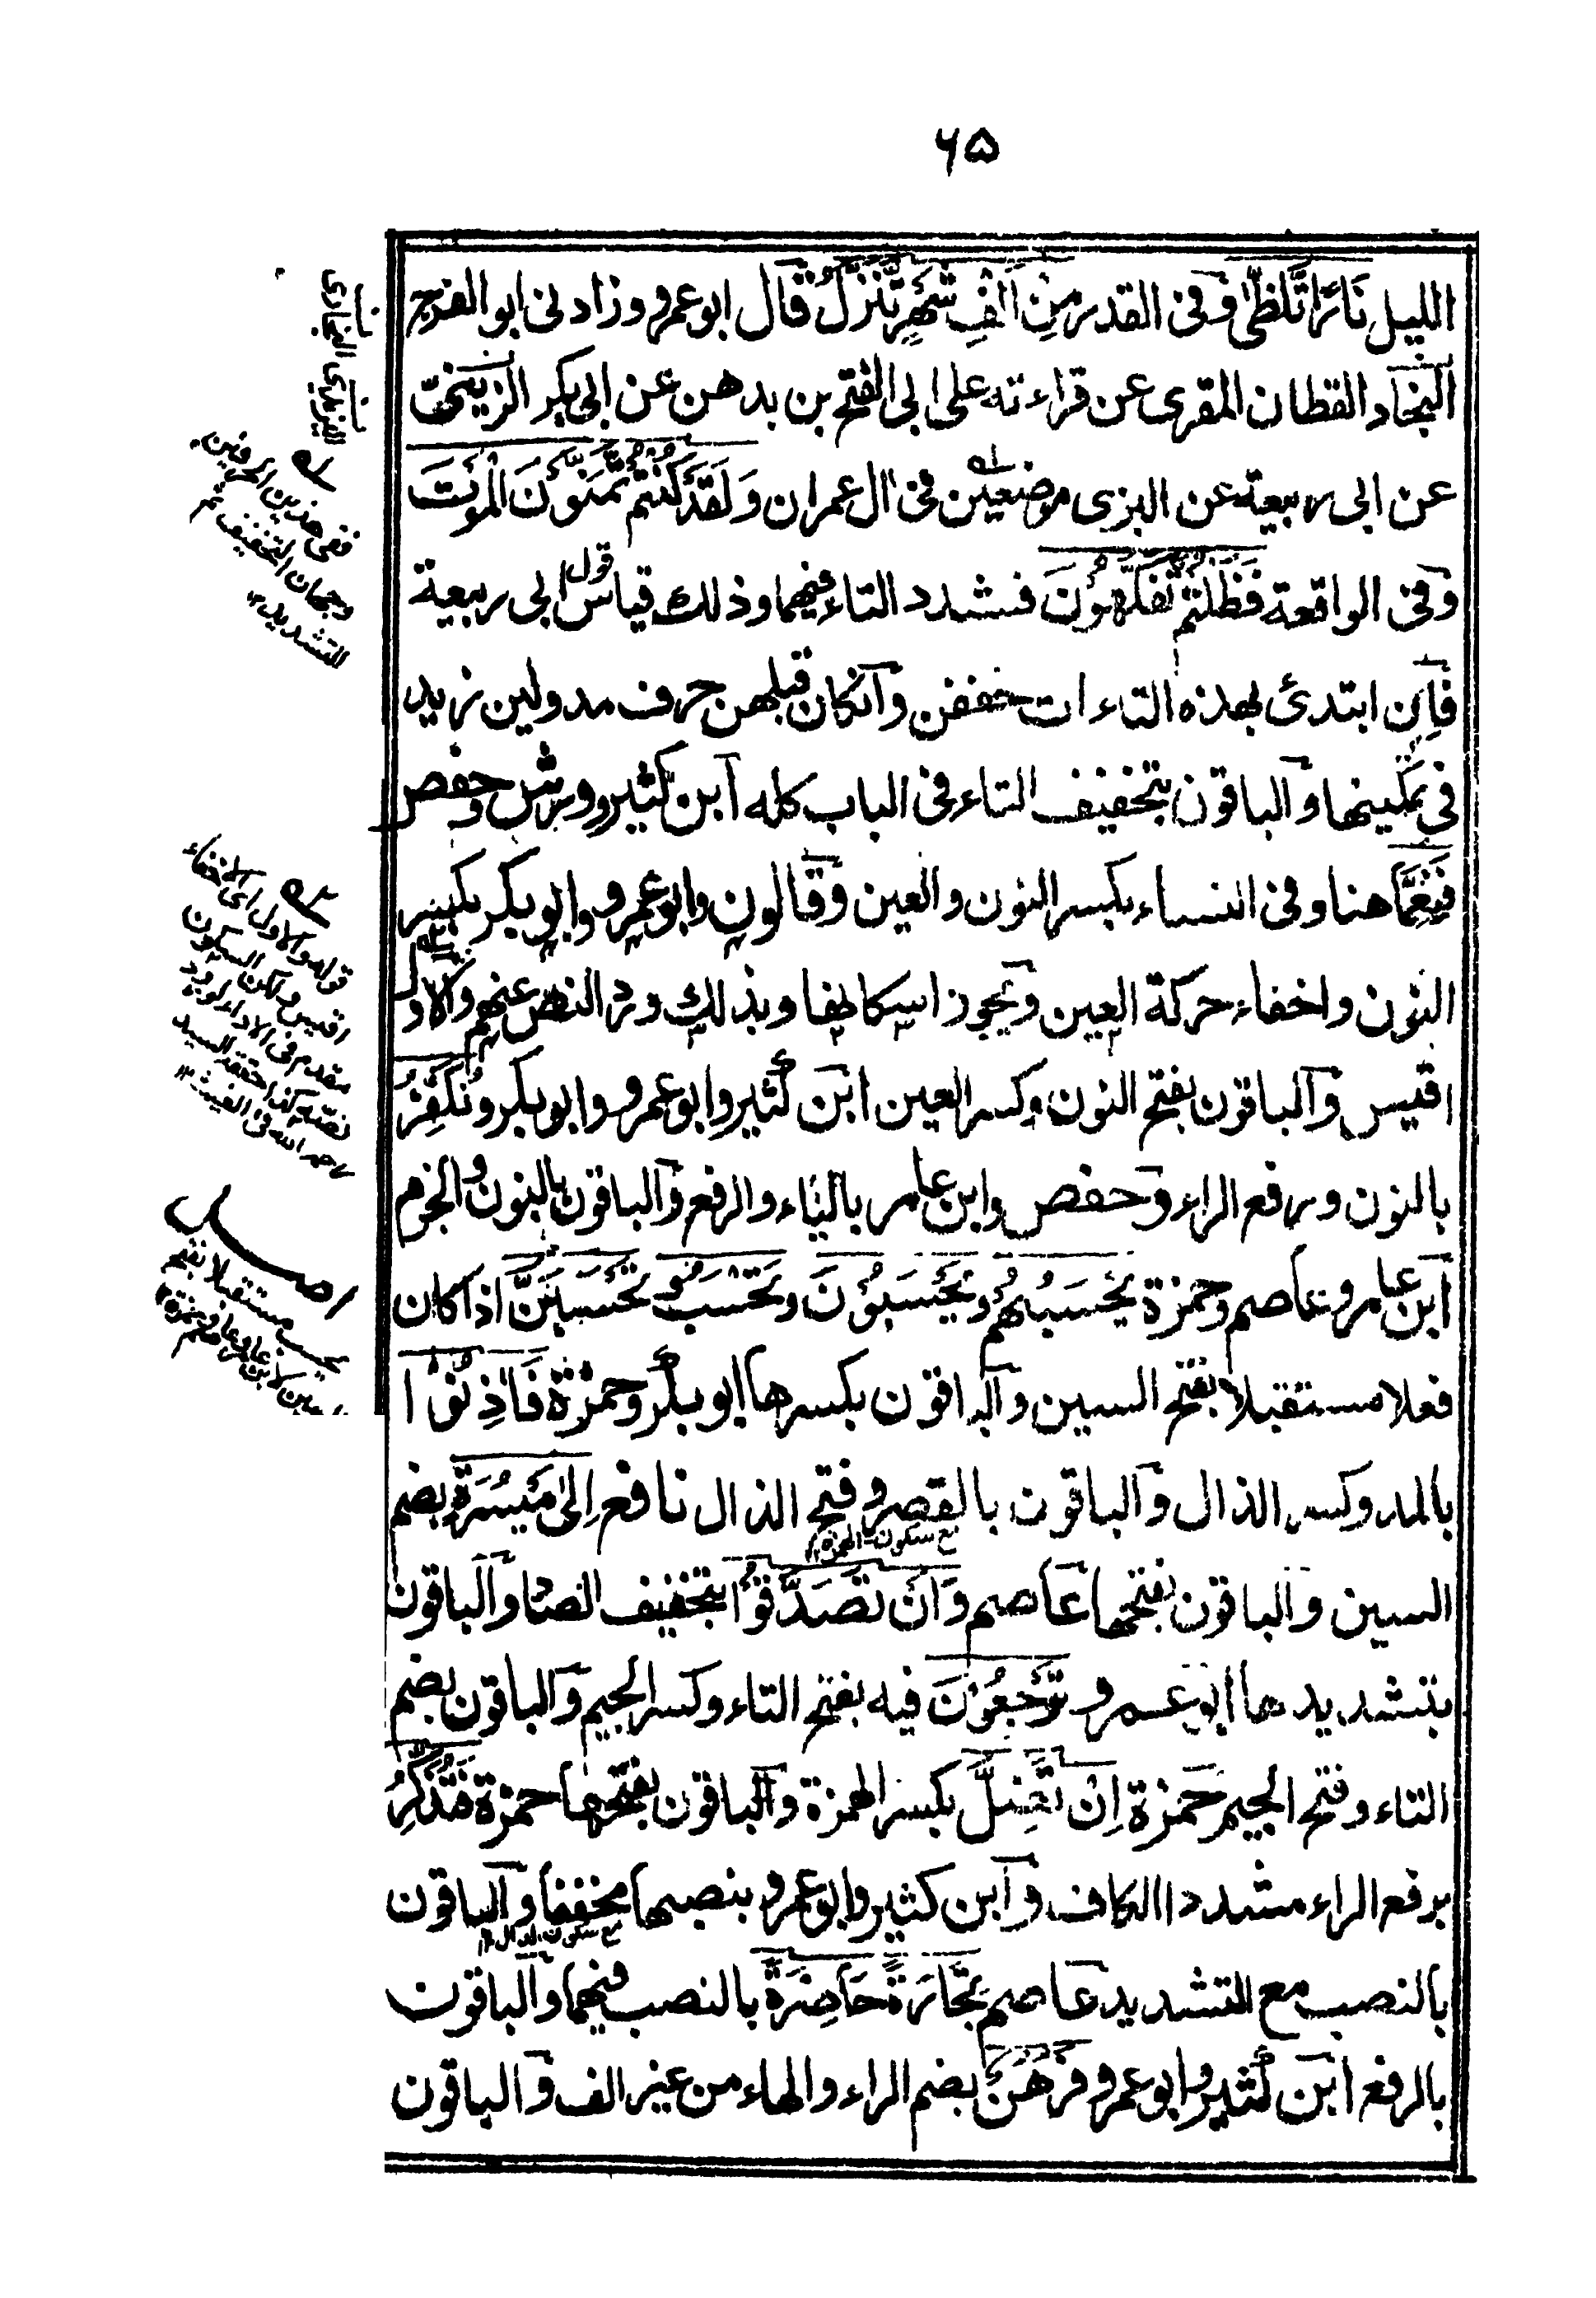 ۶۵
الليل نَارًا تَّلَظّٰى وفى القدر مِنْ اَلْفِ شَهْرٍ تَّنَزَّلُ قال ابوعمرو وزادنى ابوالفرج
النجاد القطان المقرى عن قراءته على ابى الفتح بن بدهن عن ابى بكر الزينبىّ
عن ابى ربيعة عن البزى موضعين فى ال عمران وَلَقَدْ كُنْتُمْ تَّمَنَّوْنَ الْمَوْتَ
وفى الواقعة فَظَلْتُمْ تَّفَكَّهُوْنَ فشدد التاء فيهما وذلك قياس قول ابى ربيعة
فاِن ابتدئ بهذه التاءات خففن وانكان قبلهن حرف مد ولين زيد
فى تمكينها والباقون بتخفيف التاء فى الباب كله ابن كثير وورش وحفص
فَنِعِمَّا هنا وفى النساء بكسر النون والعين وقالون وابوعمرو وابوبكر بكسر
النون واخفاء حركة العين ويجوز اسكانها وبذلك ورد النص عنهم والاول
اقيس والباقون بفتح النون وكسر العين ابن كثير وابوعمرو وابوبكر وَنُكَفِّرُ
بالنون ورفع الراء وحفص وابن عامر بالياء والرفع والباقون بالنون والجزم
ابن عامر وعاصم وحمزة يَحْسَبُهُمْ وَيَحْسَبُوْنَ وتَحْسَبُ وتَحْسَبَنَّ اذا كان
فعلا مستقبلا بفتح السين والباقون بكسرها ابوبكر وحمزة فَاٰذِنُوْا
بالمد وكسر الذال والباقون بالقصر وفتح الذال نافع اِلٰى مَيْسُرَةٍ بضم
مع سكون الهمزة ۱۲
السين والباقون بفتحها عاصم وَاَنْ تَصَدَّقُوْا بتخفيف الصاد والباقون
بتشديدها ابوعمرو تَرْجِعُوْنَ فيه بفتح التاء وكسر الجيم والباقون بضم
التاء وفتح الجيم حمزة اِنْ تَضِلَّ بكسر الهمزة والباقون بفتحها حمزة فَتُذَكِّرُ
برفع الراء مشددا الكاف وابن كثير وابوعمرو بنصبها مخففا والباقون
مع سكون الذال ۱۲
بالنصب مع التشديد عاصم تِجَارَةً حَاضِرَةً بالنصب فيهما والباقون
بالرفع ابن كثير وابوعمرو فَرُهُنٌ بضم الراء والهاء من غير الف والباقون
ففى هذين الحرفين
وجهان التخفيف ثم
التشديد ۱۲
قوله والاول اى الاخفاء
اقيس ولكن السكون
مقدم فى الاداء لورود
نصّه كذا حققه السيد
رحمه الله فى الغيث ۱۲